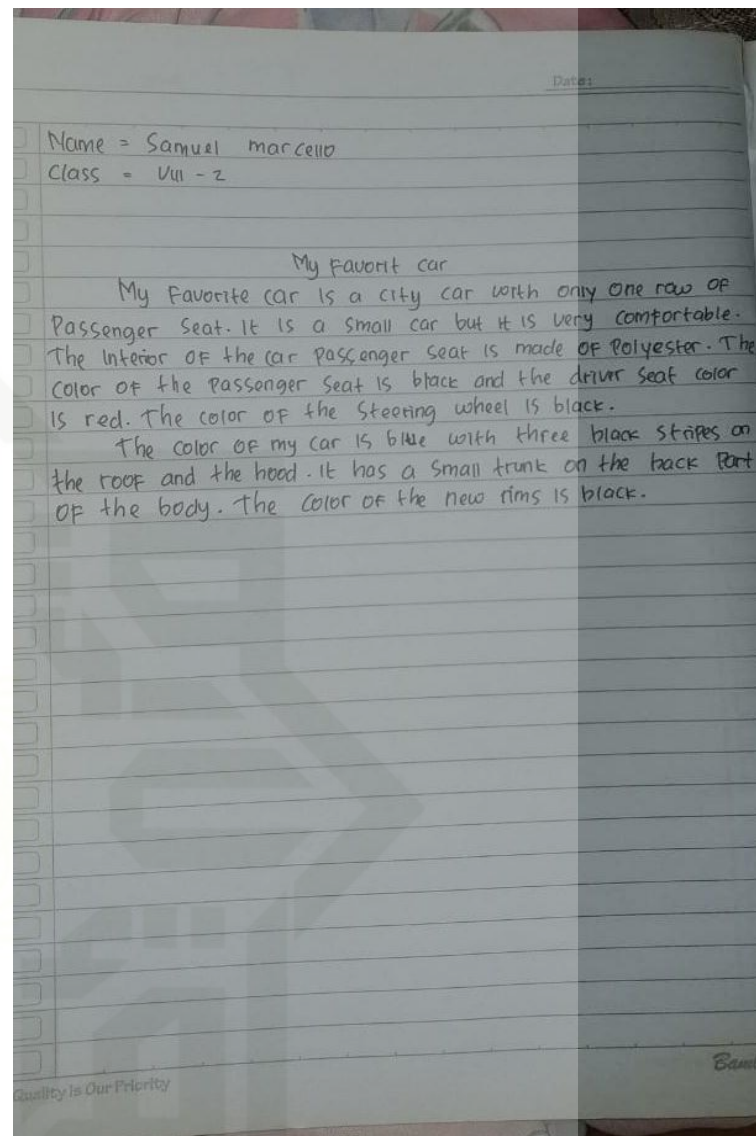 Date:
Name = Samuel marcello
Class = VIII - 2
My Favorit car
My Favorite car is a city car with only one row of
Passenger seat. It is a small car but it is very comfortable.
The interior of the car passenger seat is made of Polyester. The
color of the passenger seat is black and the driver seat color
is red. The color of the steering wheel is black.
The color of my car is blue with three black stripes on
the roof and the hood. It has a small trunk on the back Part
of the body. The color of the new rims is black.
Quality Is Our Priority